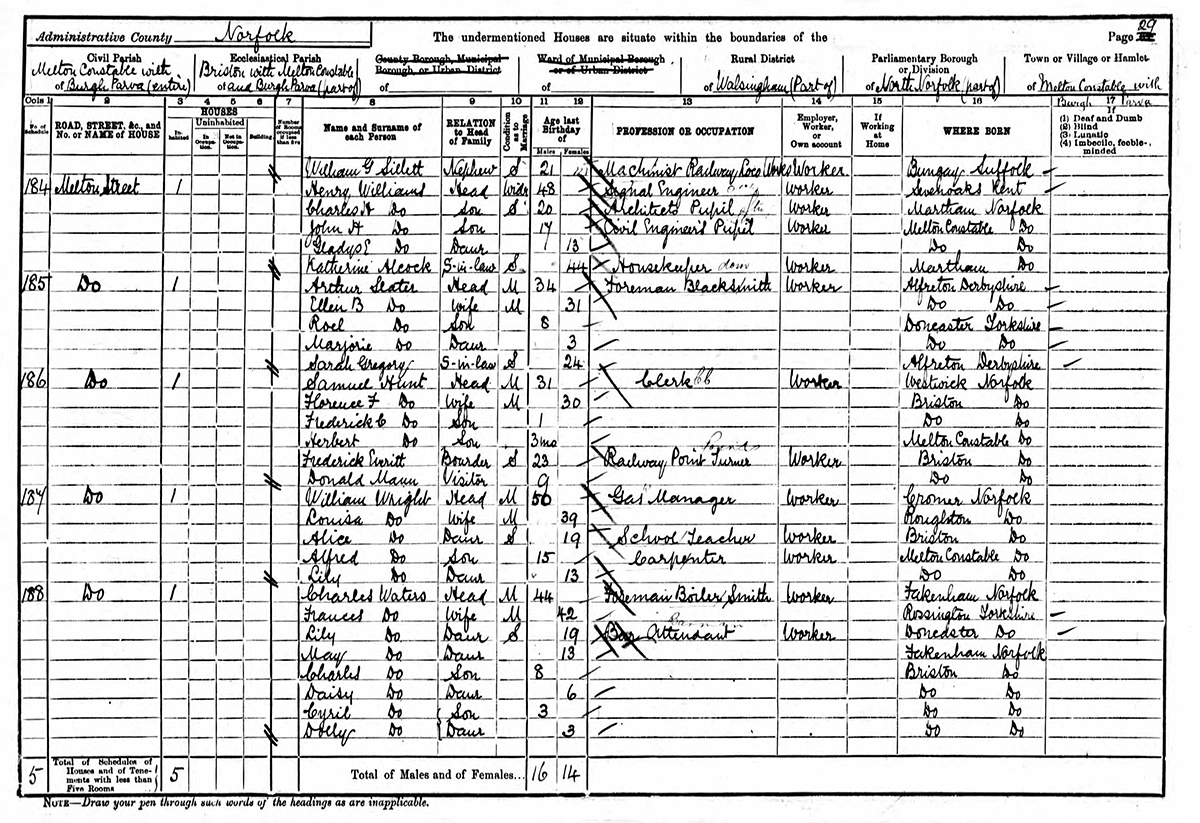 Administrative County Norfolk The undermentioned Houses are situate within the boundaries of the Page 29
Civil Parish Ecclesiastical Parish County Borough, Municipal Borough, or Urban District Ward of Municipal Borough or of Urban District Rural District Parliamentary Borough or Division Town or Village or Hamlet
of Melton Constable with Burgh Parva (entire) of Briston with Melton Constable and Burgh Parva (part of) of of of Walsingham (Part of) of North Norfolk (part of) of Melton Constable with Burgh Parva
Cols 1 2 3 4 5 6 7 8 9 10 11 12 13 14 15 16 17
No. of Schedule ROAD, STREET, &c., and No. or NAME of HOUSE HOUSES Inhabited Uninhabited In Occupation. Not in Occupation. Building Number of Rooms occupied if less than five Name and Surname of each Person RELATION to Head of Family Condition as to Marriage Age last Birthday of Males Females PROFESSION OR OCCUPATION Employer, Worker, or Own account If Working at Home WHERE BORN If (1) Deaf and Dumb (2) Blind (3) Lunatic (4) Imbecile, feeble-minded
William G Sillett Nephew S 21 Machinist Railway Loco Works Worker Bungay Suffolk
184 Melton Street 1 Henry Williams Head Widr 48 Signal Engineer Worker Sevenoaks Kent
Charles H Do Son S 20 Architects Pupil Worker Martham Norfolk
John H Do Son 17 Civil Engineer's Pupil Worker Melton Constable Do
Gladys E Do Daur 13 Do Do
Katherine Alcock S-in-law S 44 Housekeeper dom Worker Martham Do
185 Do 1 Arthur Slater Head M 34 Foreman Blacksmith Worker Alfreton Derbyshire
Ellen B Do Wife M 31 Do Do
Roel Do Son 8 Doncaster Yorkshire
Marjorie Do Daur 3 Do Do
Sarah Gregory S-in-law S 24 Alfreton Derbyshire
186 Do 1 Samuel Hunt Head M 31 Clerk Worker Westwick Norfolk
Florence F Do Wife M 30 Briston Do
Frederick C Do Son 1 Do Do
Herbert Do Son 3mo Melton Constable Do
Frederick Everitt Boarder S 23 Railway Point Turner Worker Briston Do
Donald Mann Visitor 9 Do Do
187 Do 1 William Wright Head M 50 Gas Manager Worker Cromer Norfolk
Louisa Do Wife M 39 Roughton Do
Alice Do Daur S 19 School Teacher Worker Briston Do
Alfred Do Son 15 Carpenter Worker Melton Constable Do
Lily Do Daur 13 Do Do
188 Do 1 Charles Waters Head M 44 Foreman Boiler Smith Worker Fakenham Norfolk
Frances Do Wife M 42 Rossington Yorkshire
Lily Do Daur S 19 Bar Attendant Worker Doncaster Do
May Do Daur 13 Fakenham Norfolk
Charles Do Son 8 Briston Do
Daisy Do Daur 6 Do Do
Cyril Do Son 3 Do Do
Dolly Do Daur 3 Do Do
5 Total of Schedules of Houses and of Tenements with less than Five Rooms 5 Total of Males and of Females... 16 14
NOTE—Draw your pen through such words of the headings as are inapplicable.